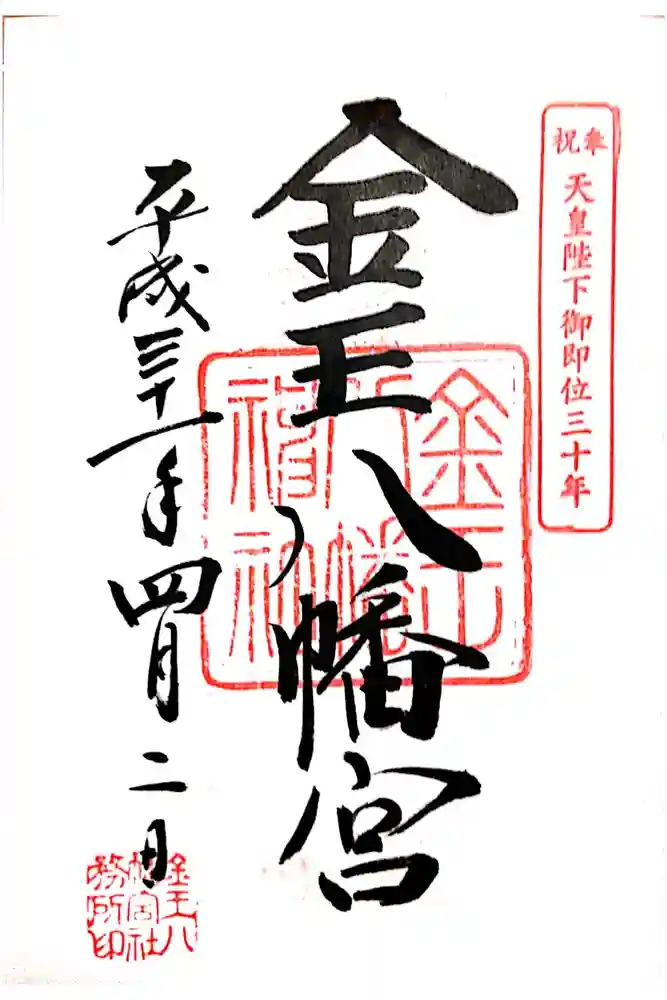 奉祝
天皇陛下御即位三十年
金王八幡宮
金王
八幡
平成三十一年四月二日
金王八
幡宮社
務所印